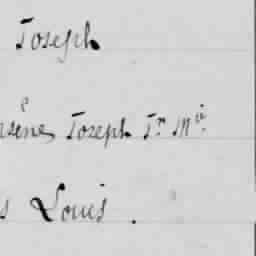 Joseph
rsène Joseph Jn Mie
s Louis.